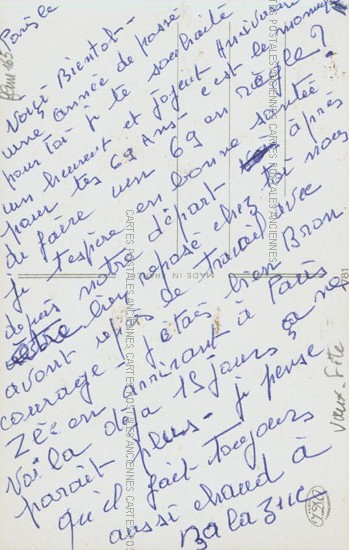 Paris le
Voiçi Bientot -
une année de passé
pour toi je te souhaite
un heureux et joyeux Anniversaire
pour tes 69 Ans - c'est le moment
de faire un 69 en règle ?
je t'espère en bonne santée
depuis notre départ après
bien reposé chez toi nous
avont repris de travail avec
courage - j'étais bien Bron
Zée en arrivant à Paris
Voi la déja 15 jours ça ne
parait plus - je pense
qu'il fait toujours
aussi chaud à
Balazuc
CARTES POSTALES ANCIENNES
MADE IN
Vœux - Fête